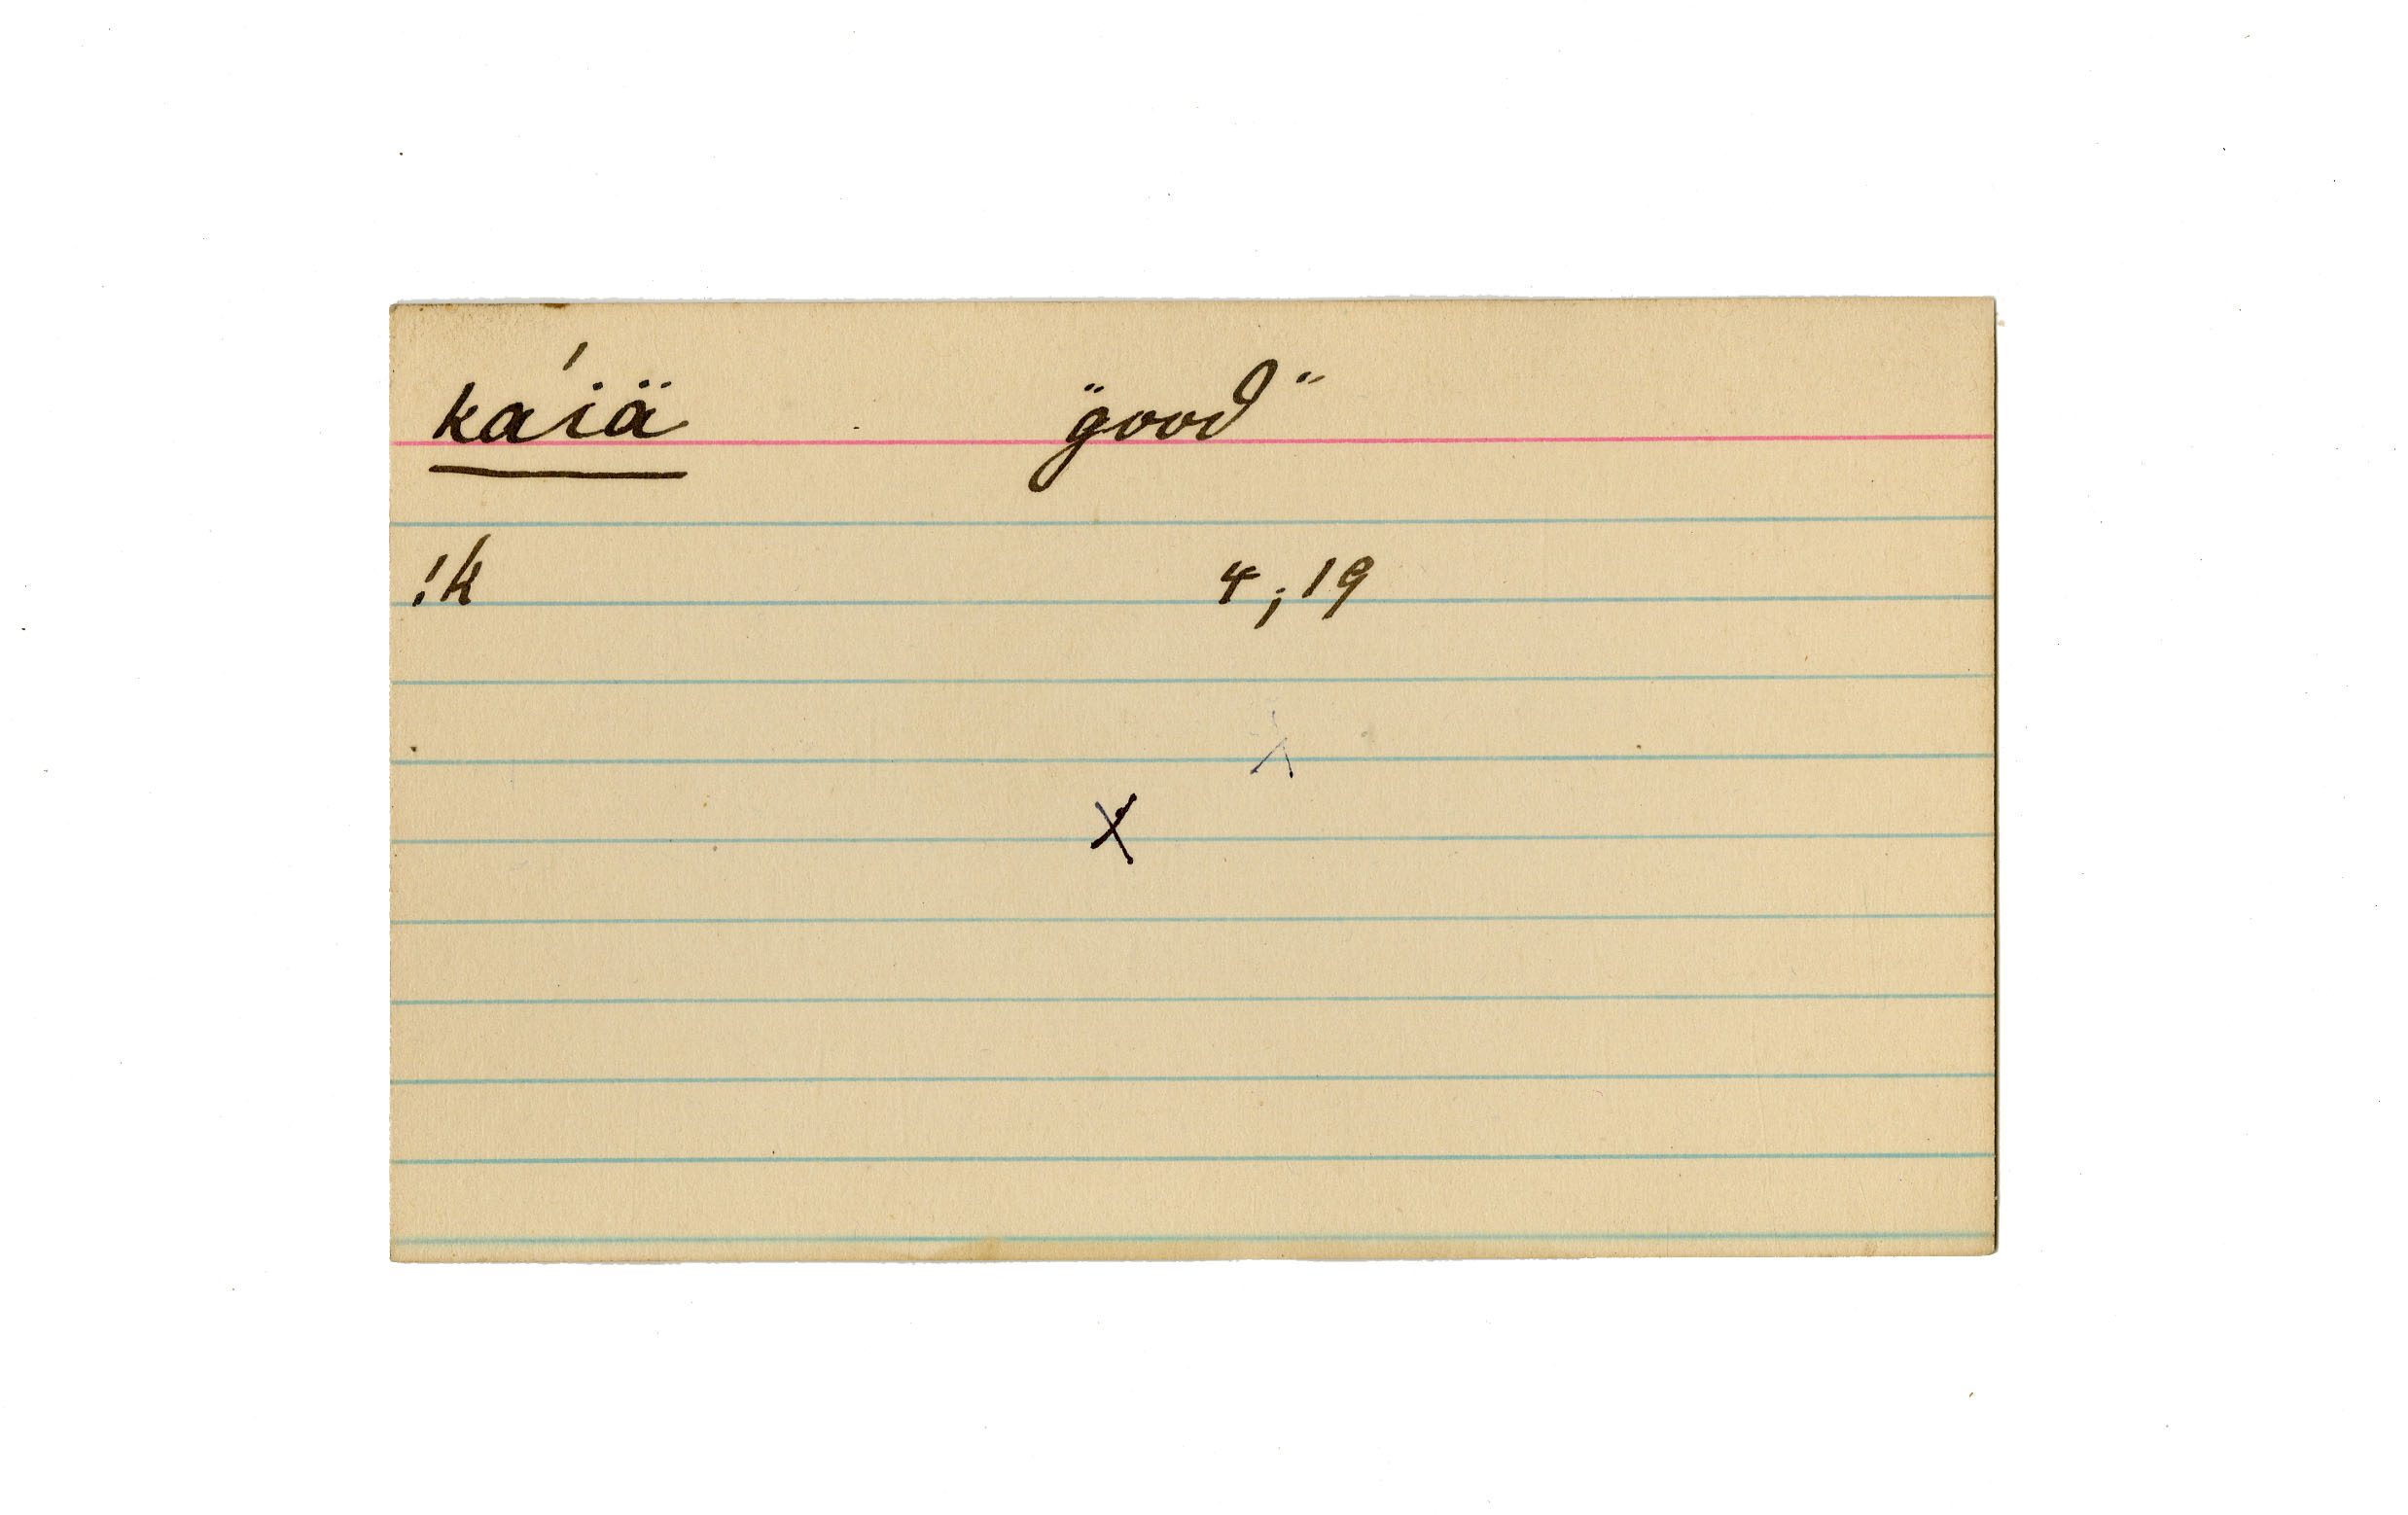 ka'iä "good"
!k 4;19
x
x